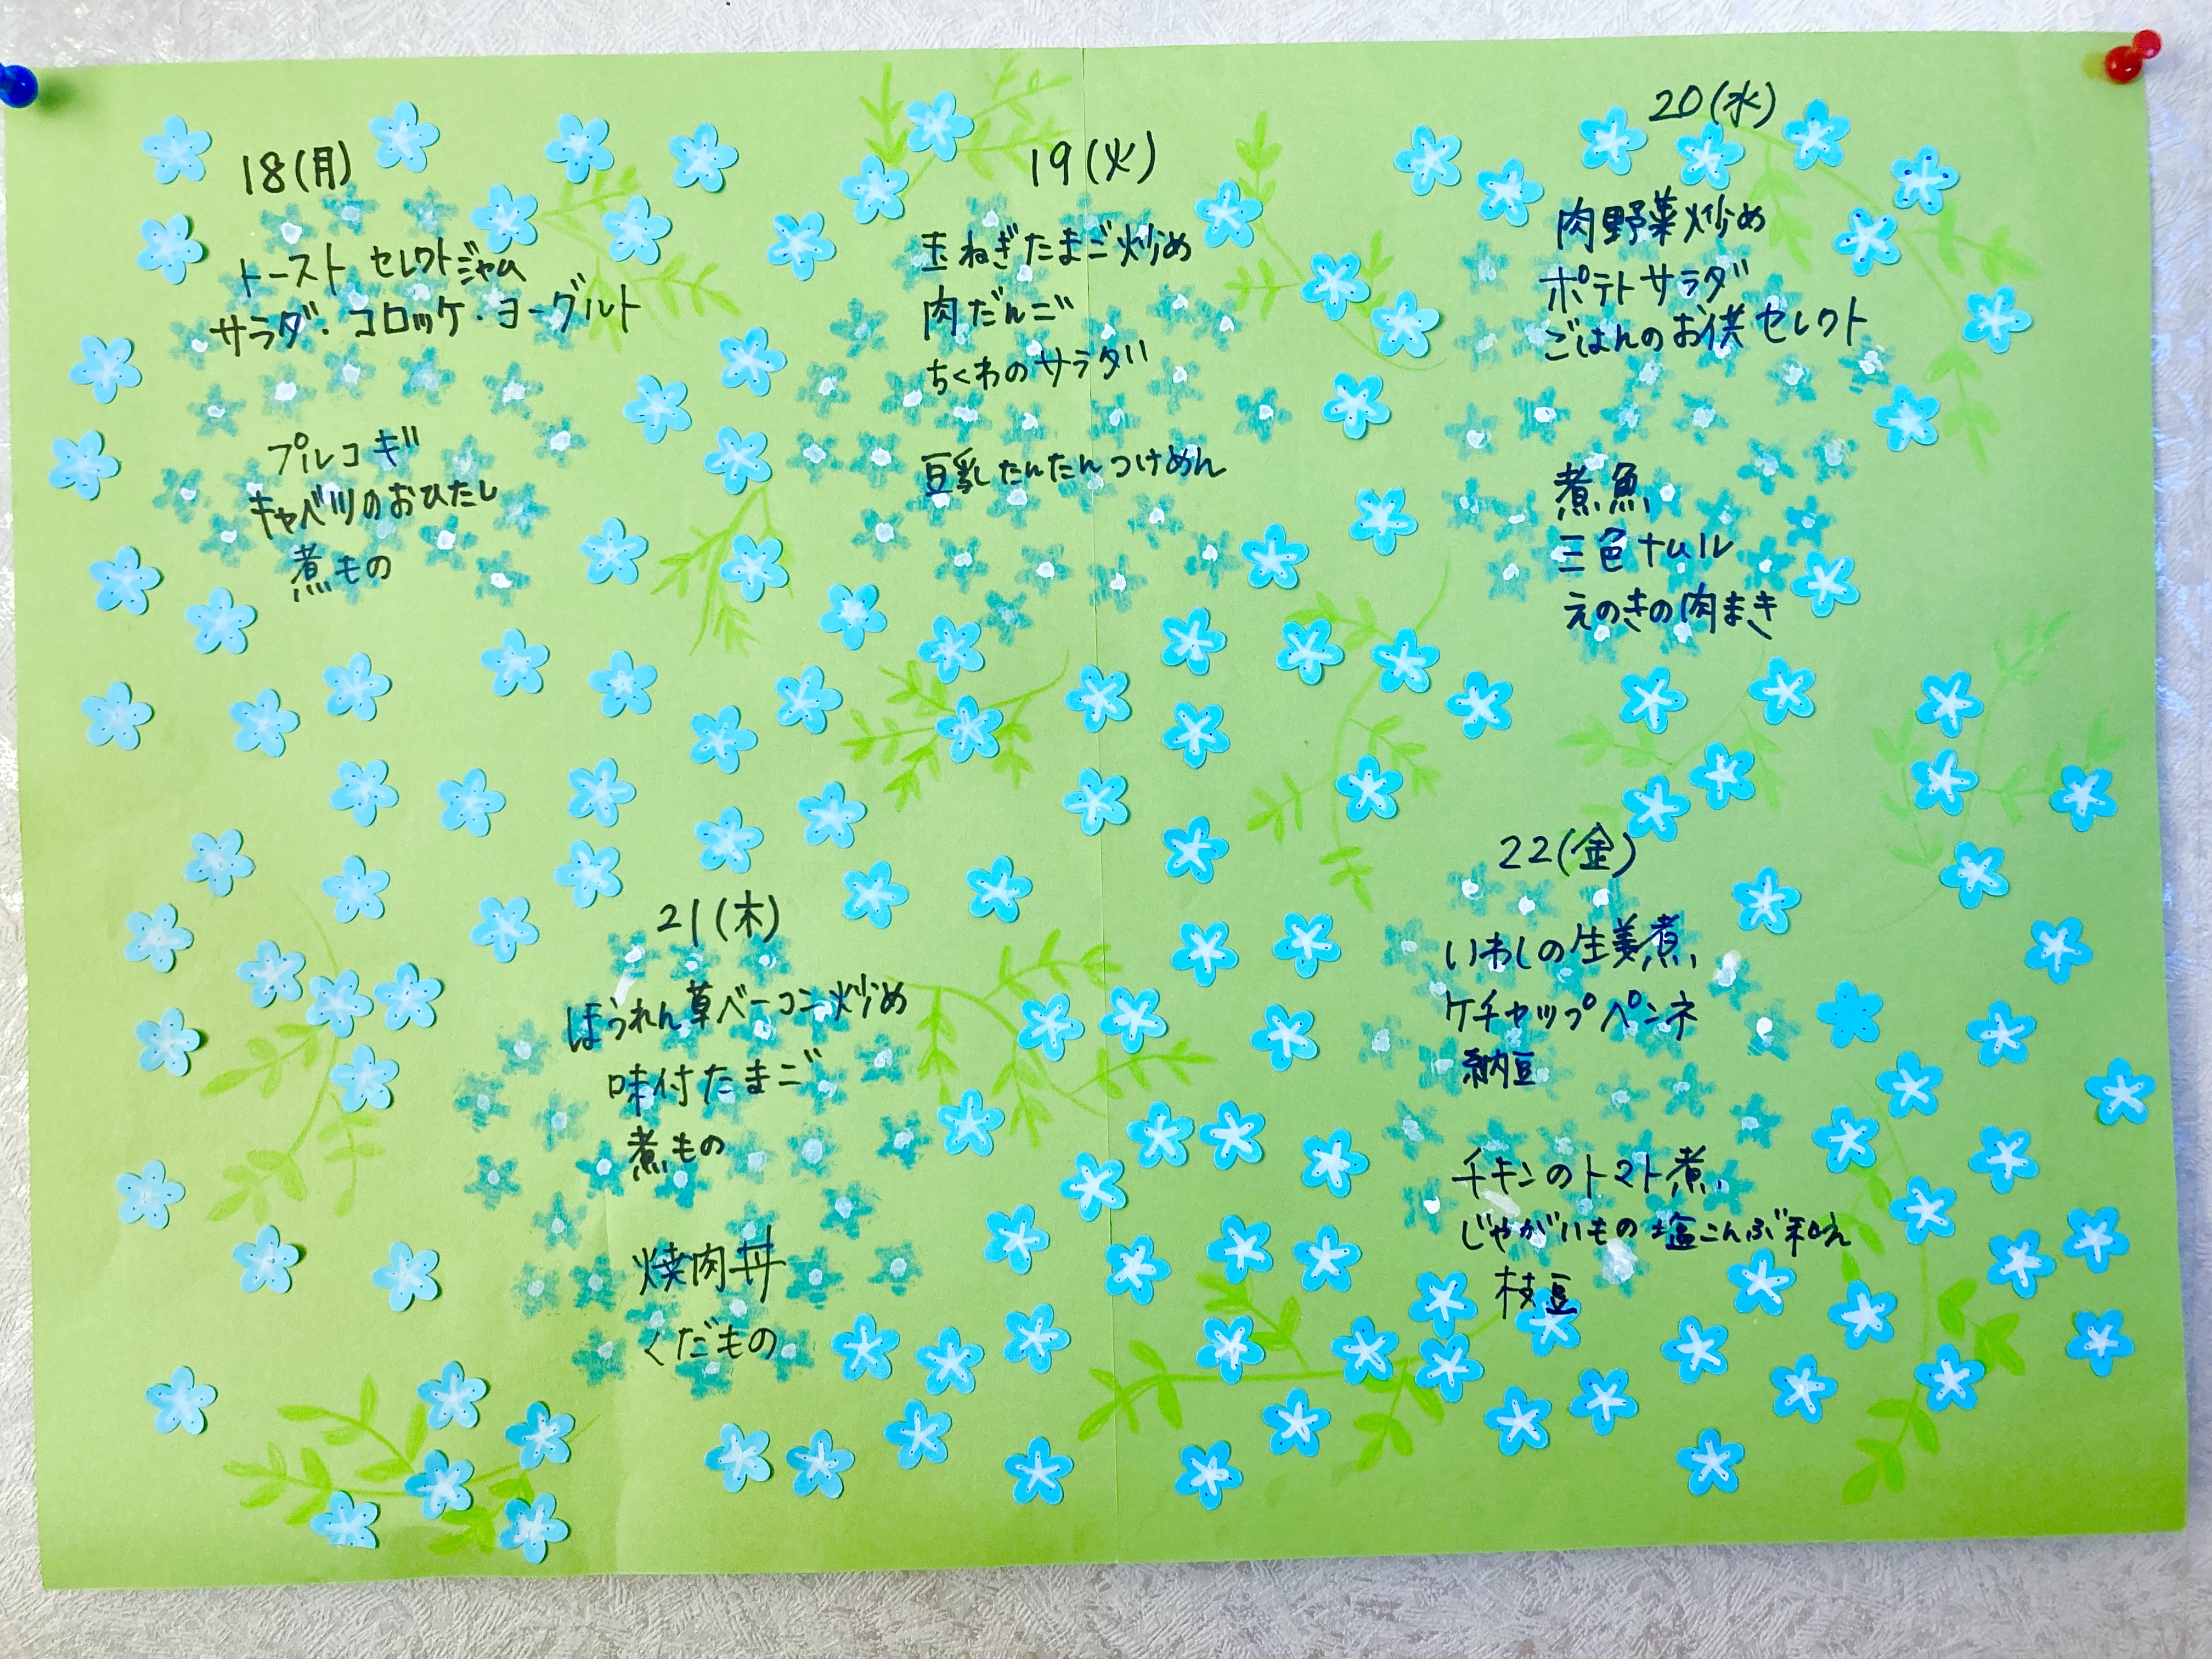 18(月)
トースト セレクトジャム
サラダ・コロッケ・ヨーグルト
プルコギ
キャベツのおひたし
煮もの
19(火)
玉ねぎたまご炒め
肉だんご
ちくわのサラダ
豆乳たんたんつけめん
20(水)
肉野菜炒め
ポテトサラダ
ごはんのお供セレクト
煮魚
三色ナムル
えのきの肉まき
21(木)
ほうれん草ベーコン炒め
味付たまご
煮もの
焼肉丼
くだもの
22(金)
いわしの生姜煮
ケチャップペンネ
納豆
チキンのトマト煮
じゃがいもの塩こんぶ和え
枝豆